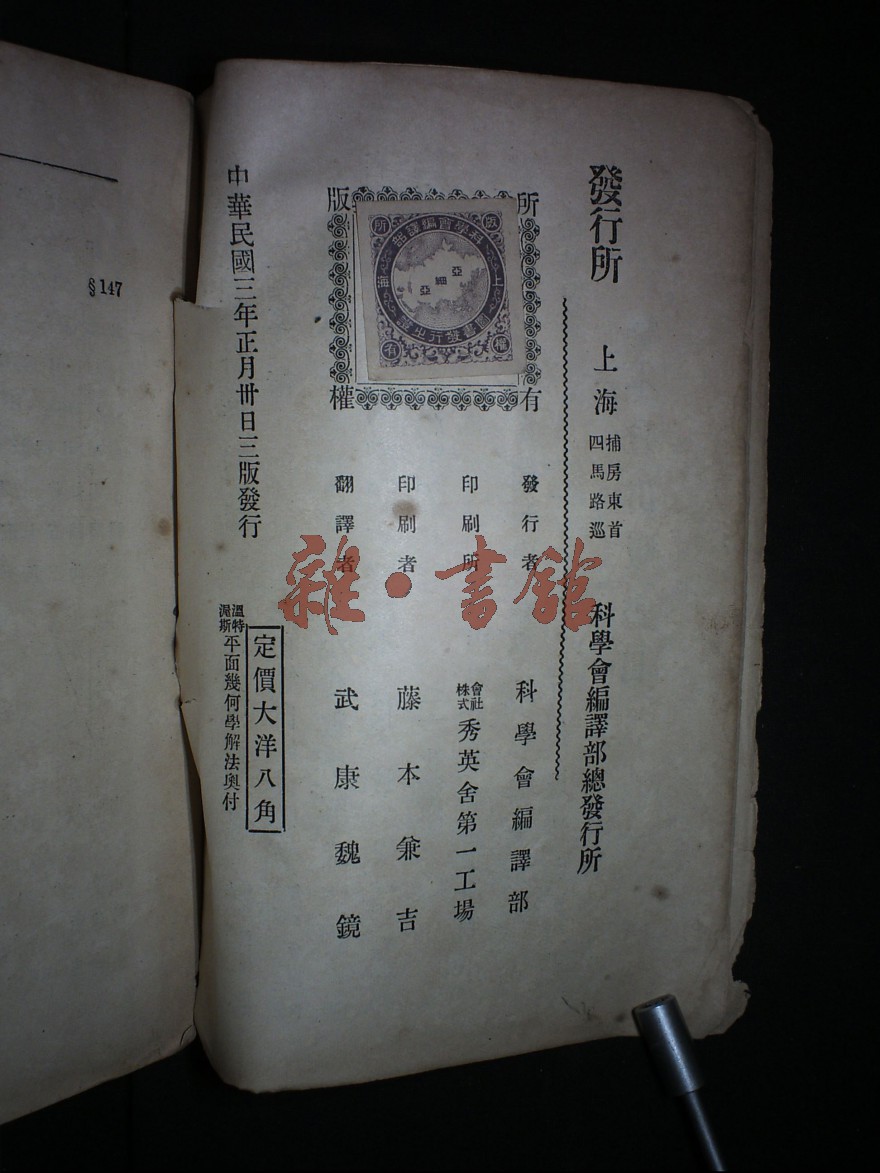 發行所 上海 四馬路巡捕房東首 科學會編譯部總發行所
版權所有
科學會編譯部
上海
圖書發行之章
亞細亞
版權所有
發行者 科學會編譯部
印刷所 株式會社 秀英舍第一工場
印刷者 藤本兼吉
翻譯者 武康魏鏡
定價大洋八角
中華民國三年正月卅日三版發行
溫特渥斯平面幾何學解法奧付
§147
雜·書館